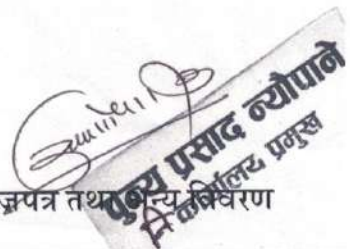 पुन्य प्रसाद न्यौपाने
नि कार्यालय प्रमुख
जपत्र तथा अन्य विवरण